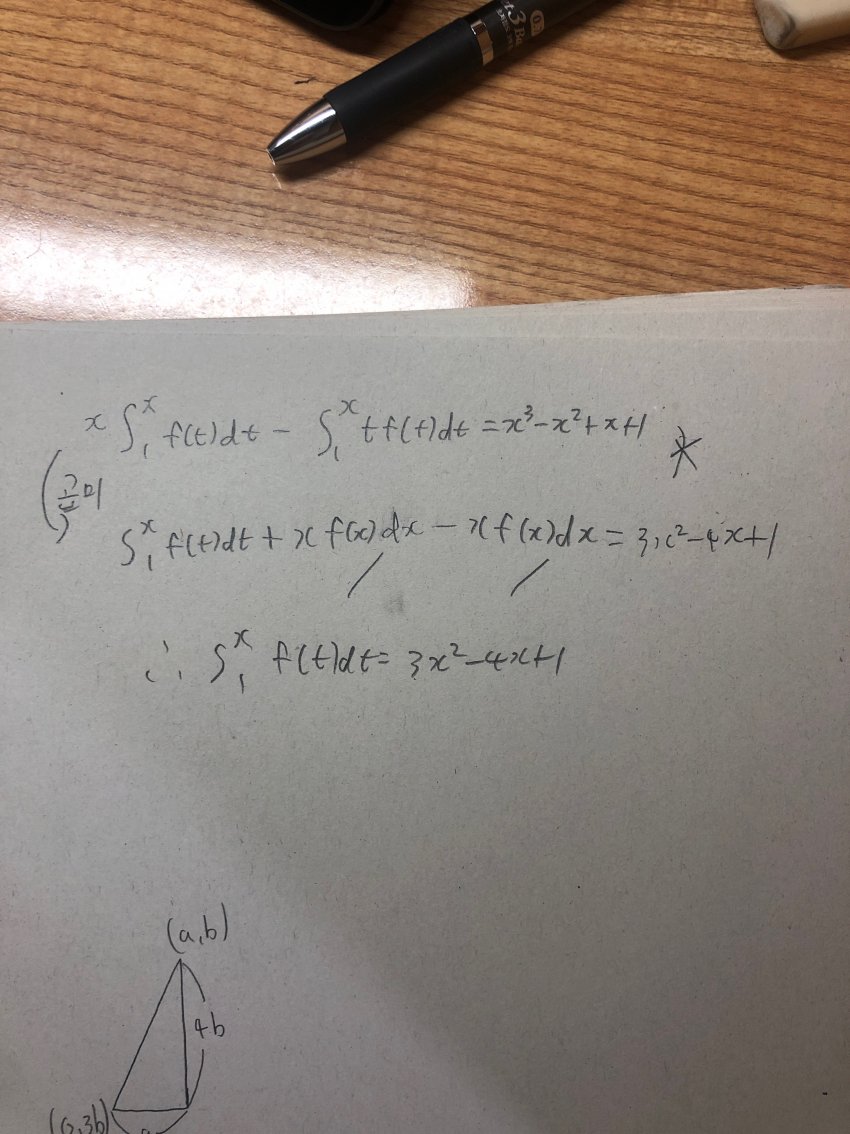 x∫₁ˣ f(t)dt - ∫₁ˣ tf(t)dt = x³-x²+x+1 *
∫₁ˣ f(t)dt + x f(x)dx - x f(x)dx = 3x²-4x+1
∴ ∫₁ˣ f(t)dt = 3x²-4x+1
(a,b)
4b